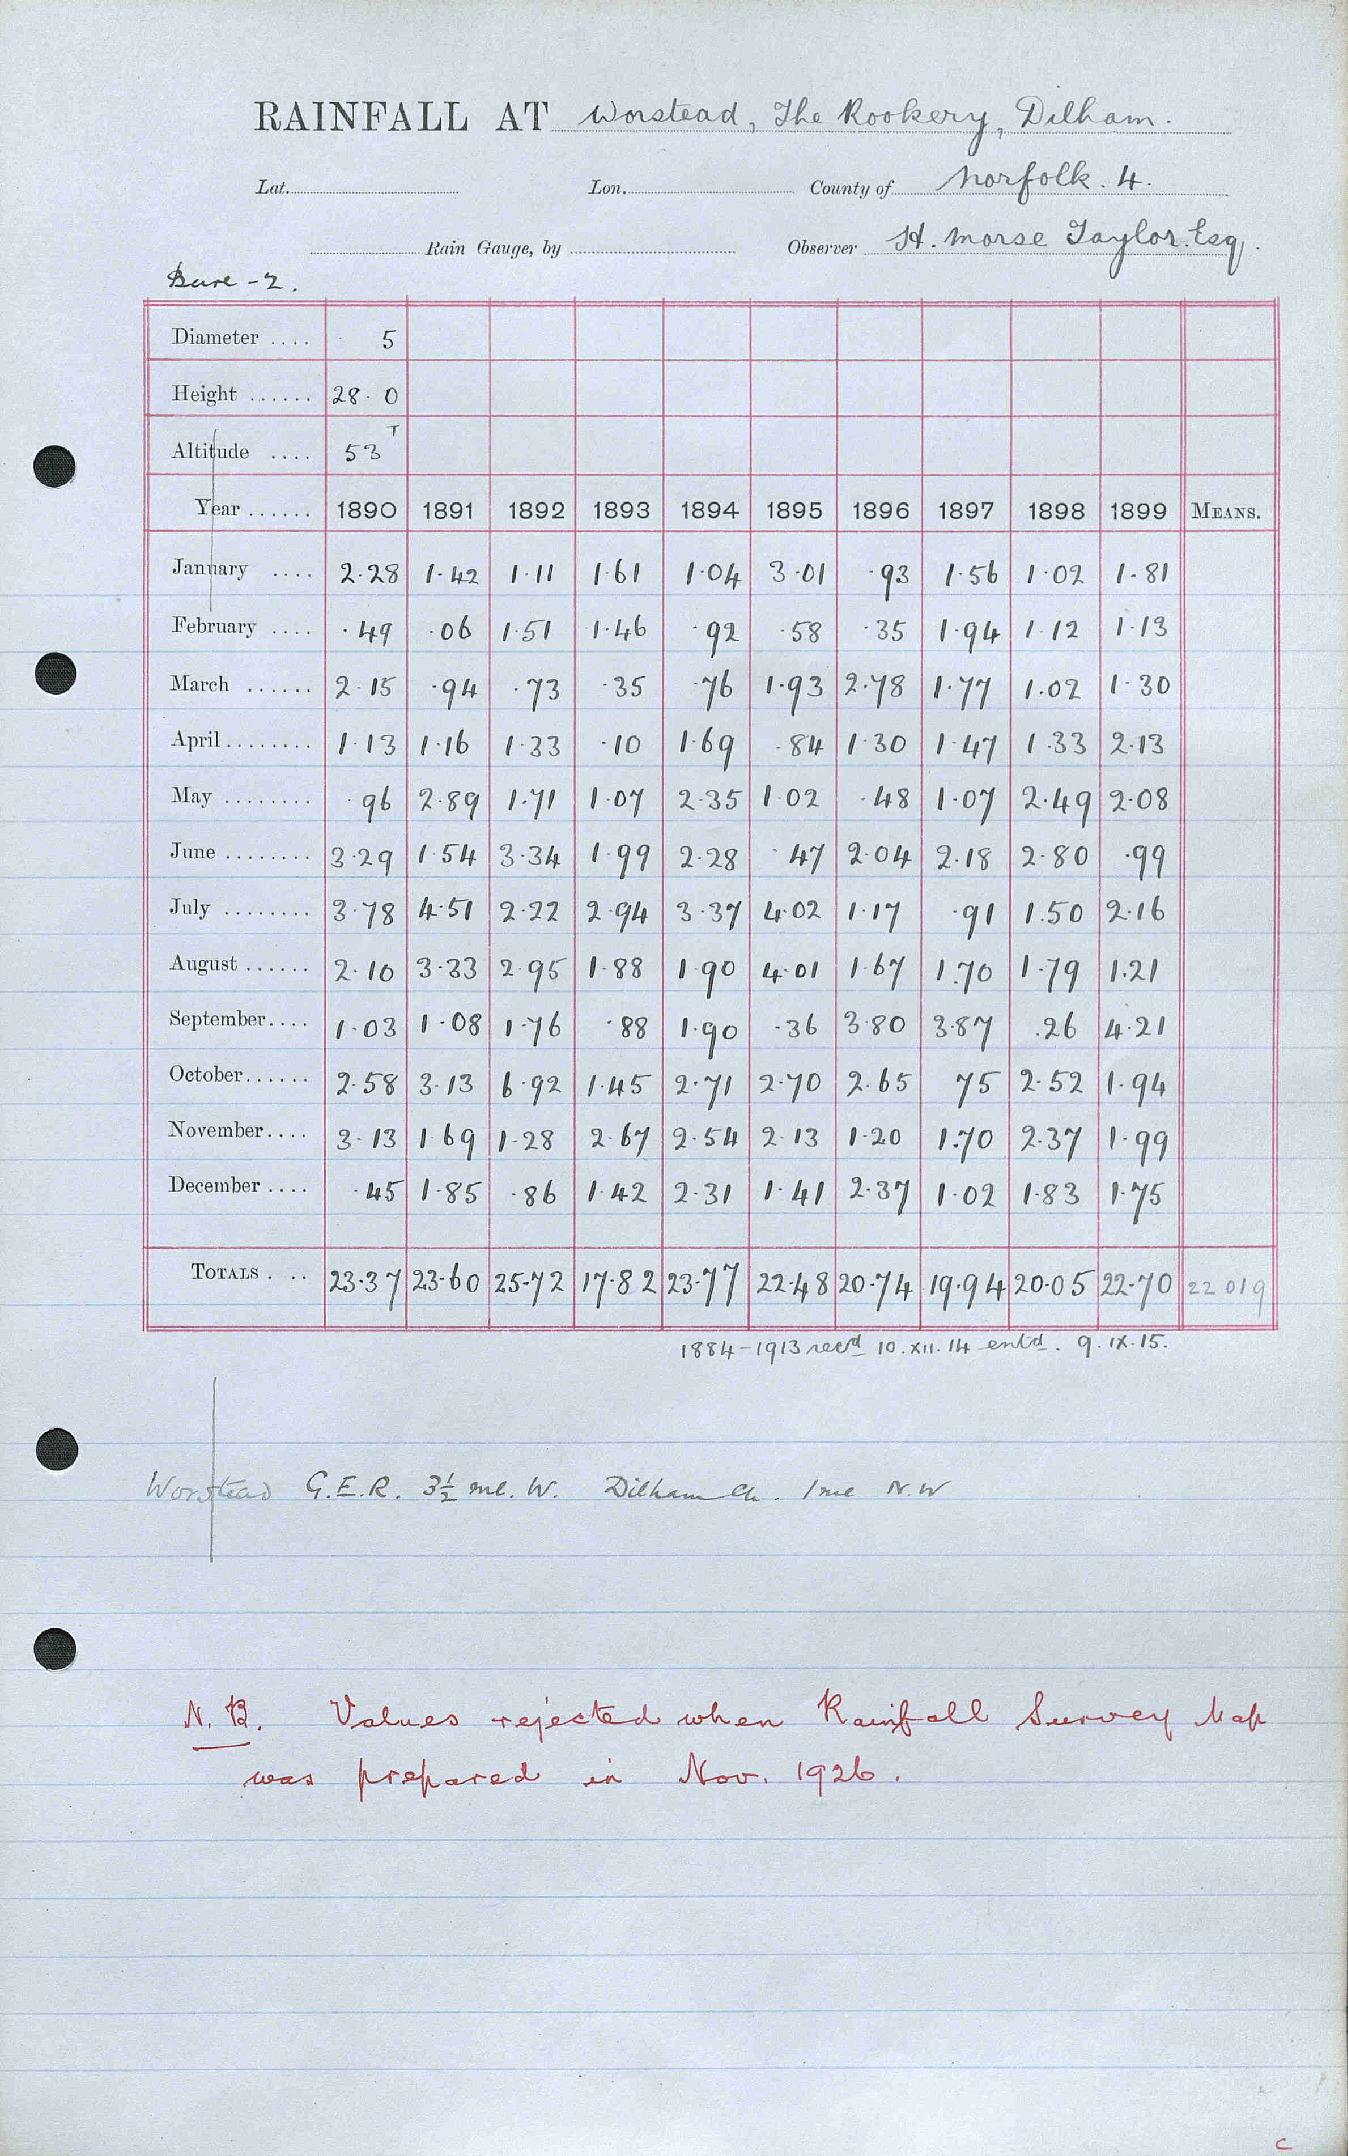 RAINFALL AT Worstead, The Rookery, Dilham.
Lat. Lon. County of Norfolk. 4.
Rain Gauge, by Observer H. Morse Taylor. Esq.
Bure - 2.
Diameter .... 5
Height ...... 28. 0
Altitude .... 53 T
Year ...... 1890 1891 1892 1893 1894 1895 1896 1897 1898 1899 MEANS.
January .... 2.28 1.42 1.11 1.61 1.04 3.01 .93 1.56 1.02 1.81
February .... .49 .06 1.51 1.46 .92 .58 .35 1.94 1.12 1.13
March ...... 2.15 .94 .73 .35 .76 1.93 2.78 1.77 1.02 1.30
April ........ 1.13 1.16 1.33 .10 1.69 .84 1.30 1.47 1.33 2.13
May ........ .96 2.89 1.71 1.07 2.35 1.02 .48 1.07 2.49 2.08
June ........ 3.29 1.54 3.34 1.99 2.28 .47 2.04 2.18 2.80 .99
July ........ 3.78 4.51 2.22 2.94 3.37 4.02 1.17 .91 1.50 2.16
August ...... 2.10 3.33 2.95 1.88 1.90 4.01 1.67 1.70 1.79 1.21
September.... 1.03 1.08 1.76 .88 1.90 .36 3.80 3.87 .26 4.21
October...... 2.58 3.13 6.92 1.45 2.71 2.70 2.65 75 2.52 1.94
November.... 3.13 1 69 1.28 2.67 2.54 2.13 1.20 1.70 2.37 1.99
December .... .45 1.85 .86 1.42 2.31 1.41 2.37 1.02 1.83 1.75
TOTALS . .. 23.37 23.60 25.72 17.82 23.77 22.48 20.74 19.94 20.05 22.70 22 019
1884-1913 recd 10. XII. 14 entd. 9. IX. 15.
Worstead G.E.R. 3½ ml. W. Dilham Ch. 1 ml N.W
N. B. Values rejected when Rainfall Survey Map
was prepared in Nov. 1926.
c